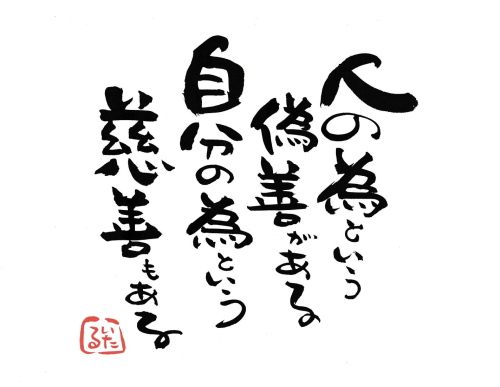 人の為という
偽善がある
自分の為という
慈善もある
いたる